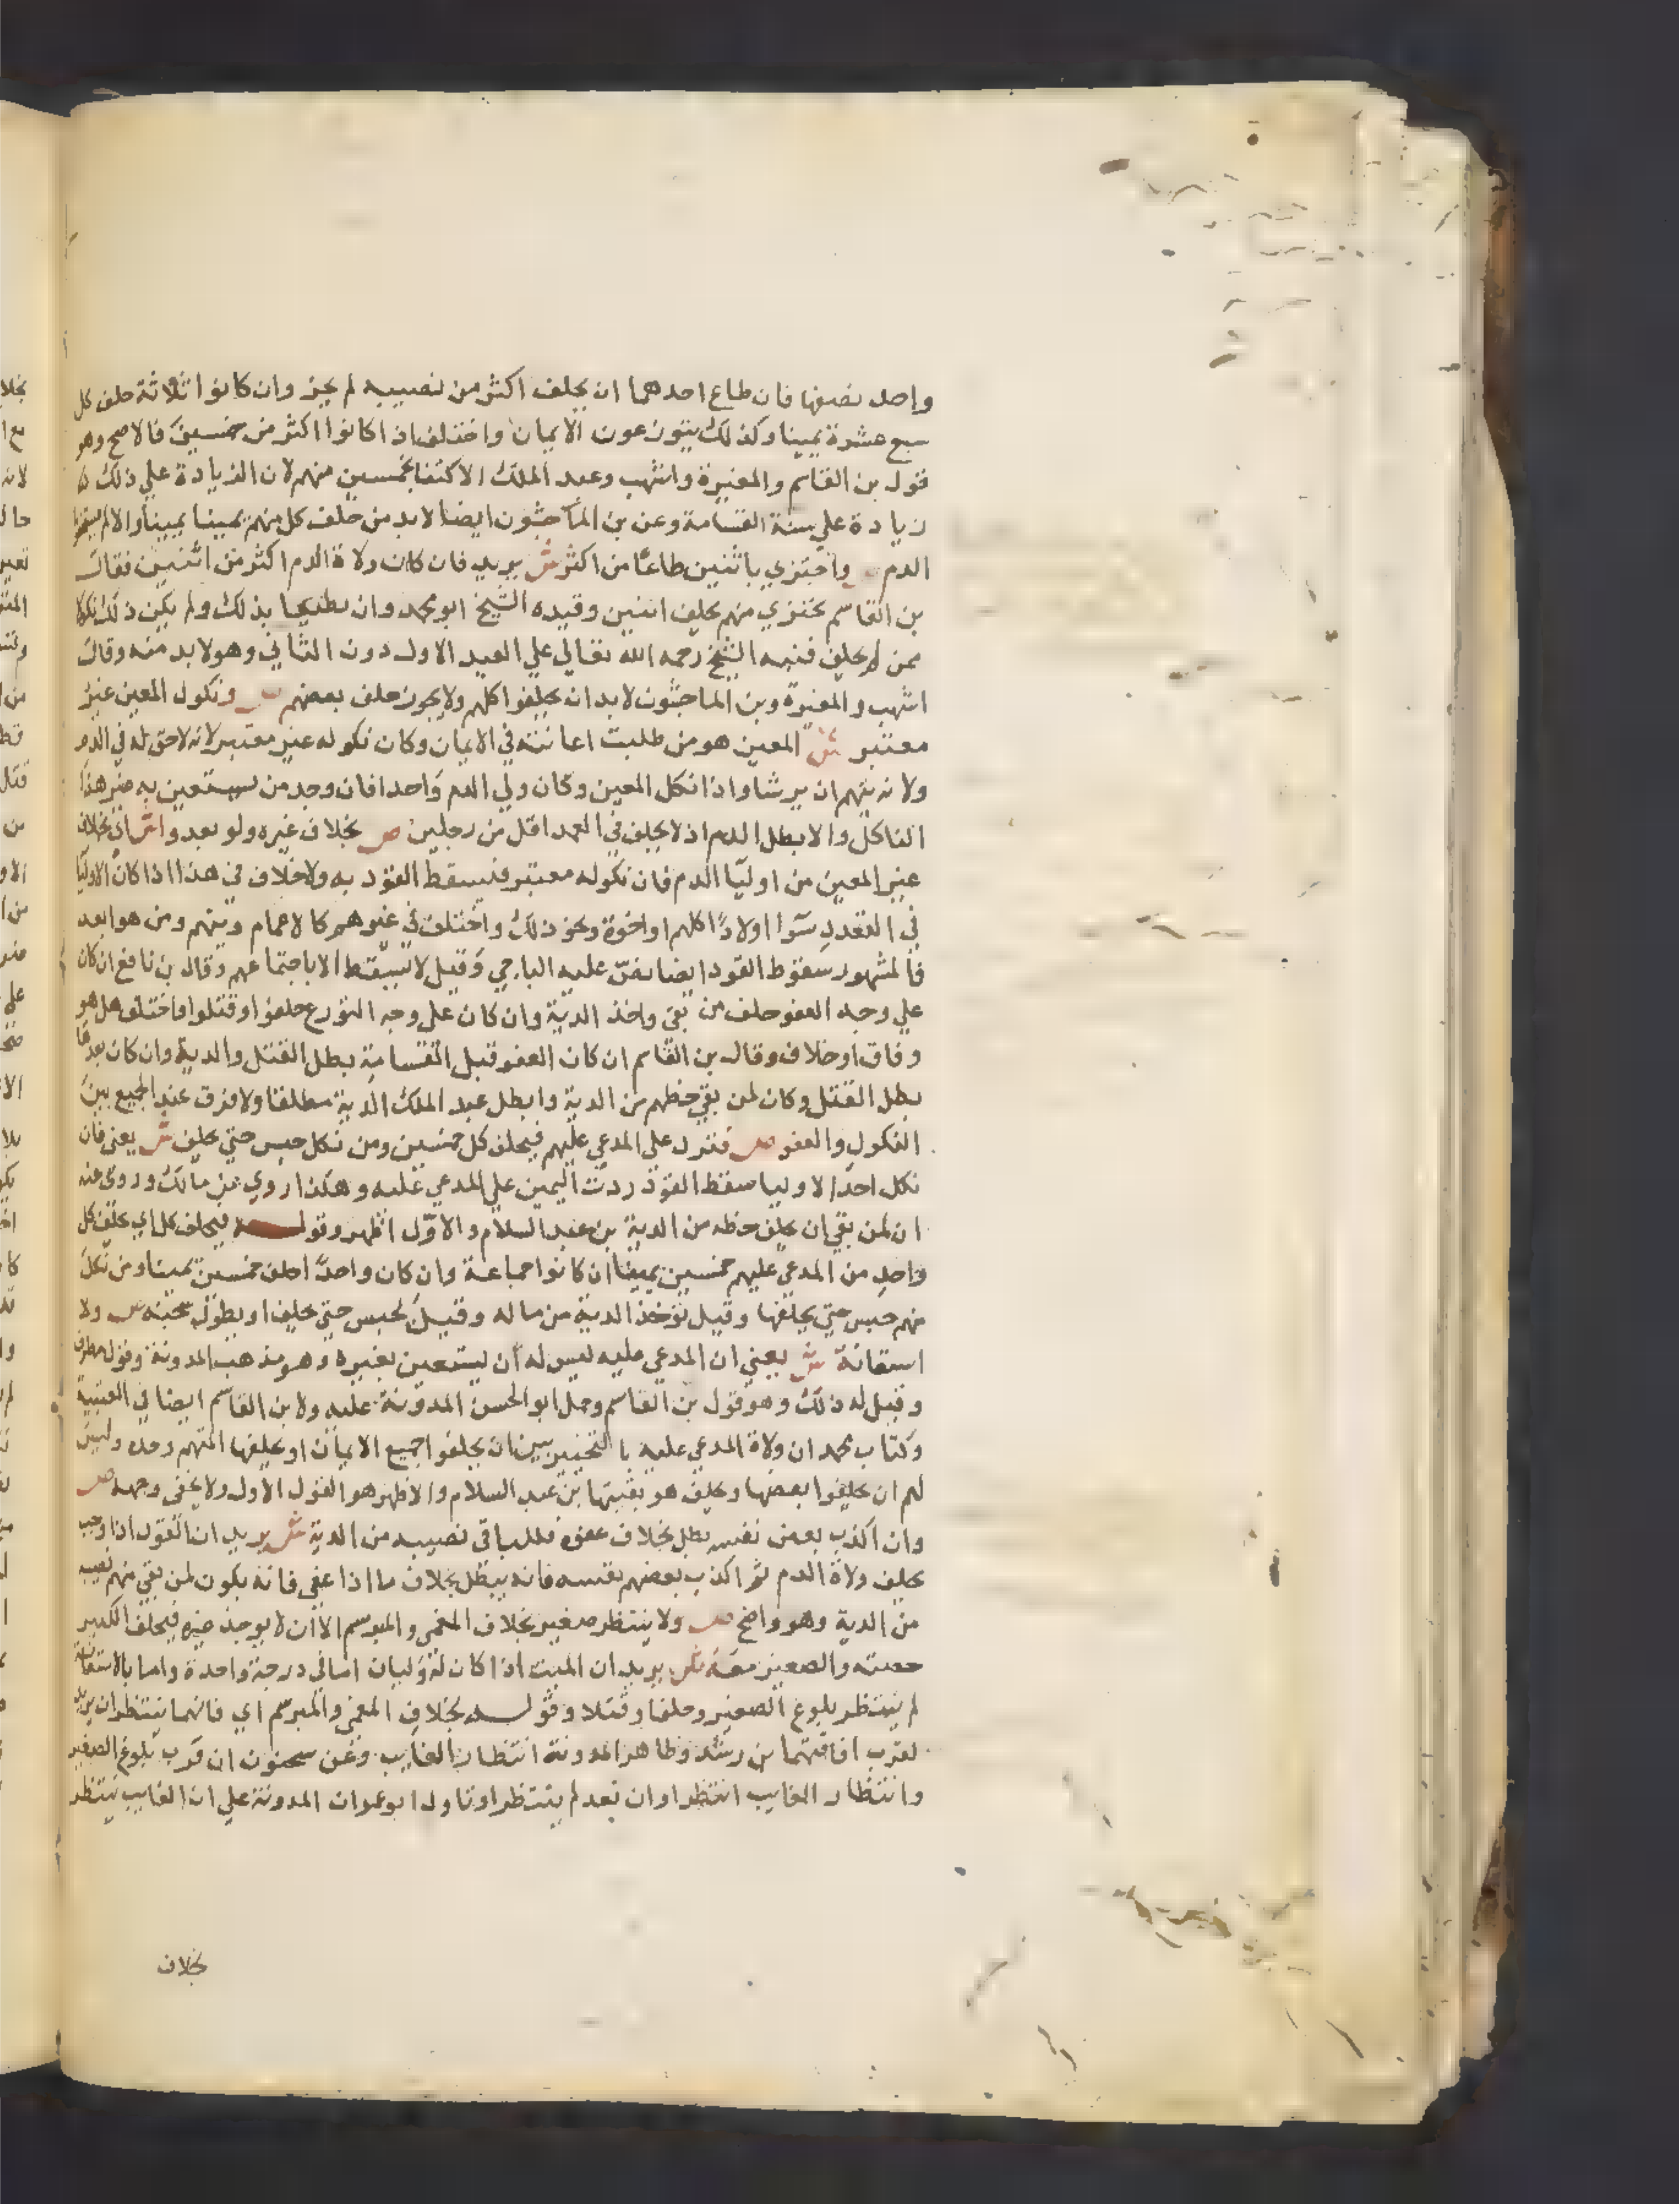 واحد نصفها فان طاع احدهما ان يحلف اكثر من نصيبه لم يجز وان كانوا ثلاثة حلف كل
سبع عشرة يمينا وكذلك يتوزعون الايمان واختلف اذا كانوا اكثر من خمسين فالاصح وهو
قول بن القاسم والمغيرة واشهب وعبد الملك الاكتفا بخمسين منهم لان الزيادة علي ذلك
زيادة علي سنة القسامة وعن بن الماجشون ايضا لابد من حلف كل منهم يمينا يمينا والا لم
الدم واجتزي باثنين طاعا من اكثر ش يريد فان كان ولاة الدم اكثر من اثنين فقال
بن القاسم يجتزي منهم بحلف اثنين وقيده الشيخ ابو محمد وان يطيعا بذلك ولم يكن ذلك نكولا
ممن لم يحلف فنبه الشيخ رحمه الله تعالي علي القيد الاول دون الثاني وهو لابد منه وقال
اشهب والمغيرة وبن الماجشون لابد ان يحلفوا كلهم ولا يجوز حلف بعضهم ص ونكول المعين غير
معتبر ش المعين هو من طلبت اعانته في الايمان وكان نكوله غير معتبر لانه لا حق له في الدم
ولانه يتهم ان يرشا واذا نكل المعين وكان ولي الدم واحدا فان وجد من يستعين به غير هذا
الناكل والا بطل الدم اذ لا يحلف في العمد اقل من رجلين ص بخلاف غيره ولو بعدوا ش اي بخلاف
غير المعين من اوليا الدم فان نكوله معتبر فيسقط القود به ولا خلاف في هذا اذا كان الاوليا
في القعدد سوا اولادا كلهم او اخوة ونحو ذلك واختلف في غيرهم كالاعمام وبنيهم ومن هو ابعد
فالمشهور سقوط القود ايضا نص عليه الباجي وقيل لا يسقط الا باجتماعهم وقال بن نافع ان كان
علي وجه العفو حلف من بقي واخذ الدية وان كان علي وجه التورع حلفوا وقتلوا فاختلف هل هو
وفاق او خلاف وقال بن القاسم ان كان العفو قبل القسامة بطل القتل والدية وان كان بعدها
بطل القتل وكان لمن بقي حظهم من الدية وابطل عبد الملك الدية مطلقا ولا فرق عند الجميع بين
النكول والعفو ص فترد علي المدعي عليهم فيحلف كل خمسين ومن نكل حبس حتي يحلف ش يعني فان
نكل احد الاوليا سقط القود ردت اليمين علي المدعي عليه وهكذا روي عن مالك وروي عنه
ان لمن بقي ان يحلف حظه من الدية بن عبد السلام والاول اظهر وقوله فيحلف كل اي يحلف كل
واحد من المدعي عليهم خمسين يمينا ان كانوا جماعة وان كان واحدا حلف خمسين يمينا ومن نكل
منهم حبس حتي يحلفها وقيل تؤخذ الدية من ماله وقيل يحبس حتي يحلف او يطول سجنه ص ولا
استعانة ش يعني ان المدعي عليه ليس له ان يستعين بغيره وهو مذهب المدونة وقول مطرف
وقيل له ذلك وهو قول بن القاسم وحمل ابو الحسن المدونة عليه ولابن القاسم ايضا في العتبية
وكتاب محمد ان ولاة المدعي عليه بالتخيير بين ان يحلفوا جميع الايمان او يحلفها المتهم وحده وليس
لهم ان يحلفوا بعضها ويحلف هو بقيتها بن عبد السلام والاظهر هو القول الاول ولا يخفي وجهه ص
وان اكذب بعض نفسه بطل بخلاف عفوه فللباقي نصيبه من الدية ش يريد ان القود اذا وجب
بحلف ولاة الدم ثم اكذب بعضهم نفسه فانه يبطل بخلاف ما اذا عفي فانه يكون لمن بقي منهم نصيبه
من الدية وهو واضح ص ولا ينتظر صغير بخلاف المغمي والمبرسم الا ان لا يوجد غيره فيحلف الكبير
حصته والصغير معه ش يريد ان الميت اذا كان له وليان اما في درجة واحدة واما بالاستعانة
لم ينتظر بلوغ الصغير وحلفا وقتلا وقوله بخلاف المغمي والمبرسم اي فانهما ينتظران يريد
لقرب افاقتهما بن رشد وظاهر المدونة انتظار الغايب وعن سحنون ان قرب بلوغ الصغير
وانتظار الغايب انتظرا وان بعد لم ينتظرا وتاول ابو عمران المدونة علي ان الغايب ينتظر
بخلاف